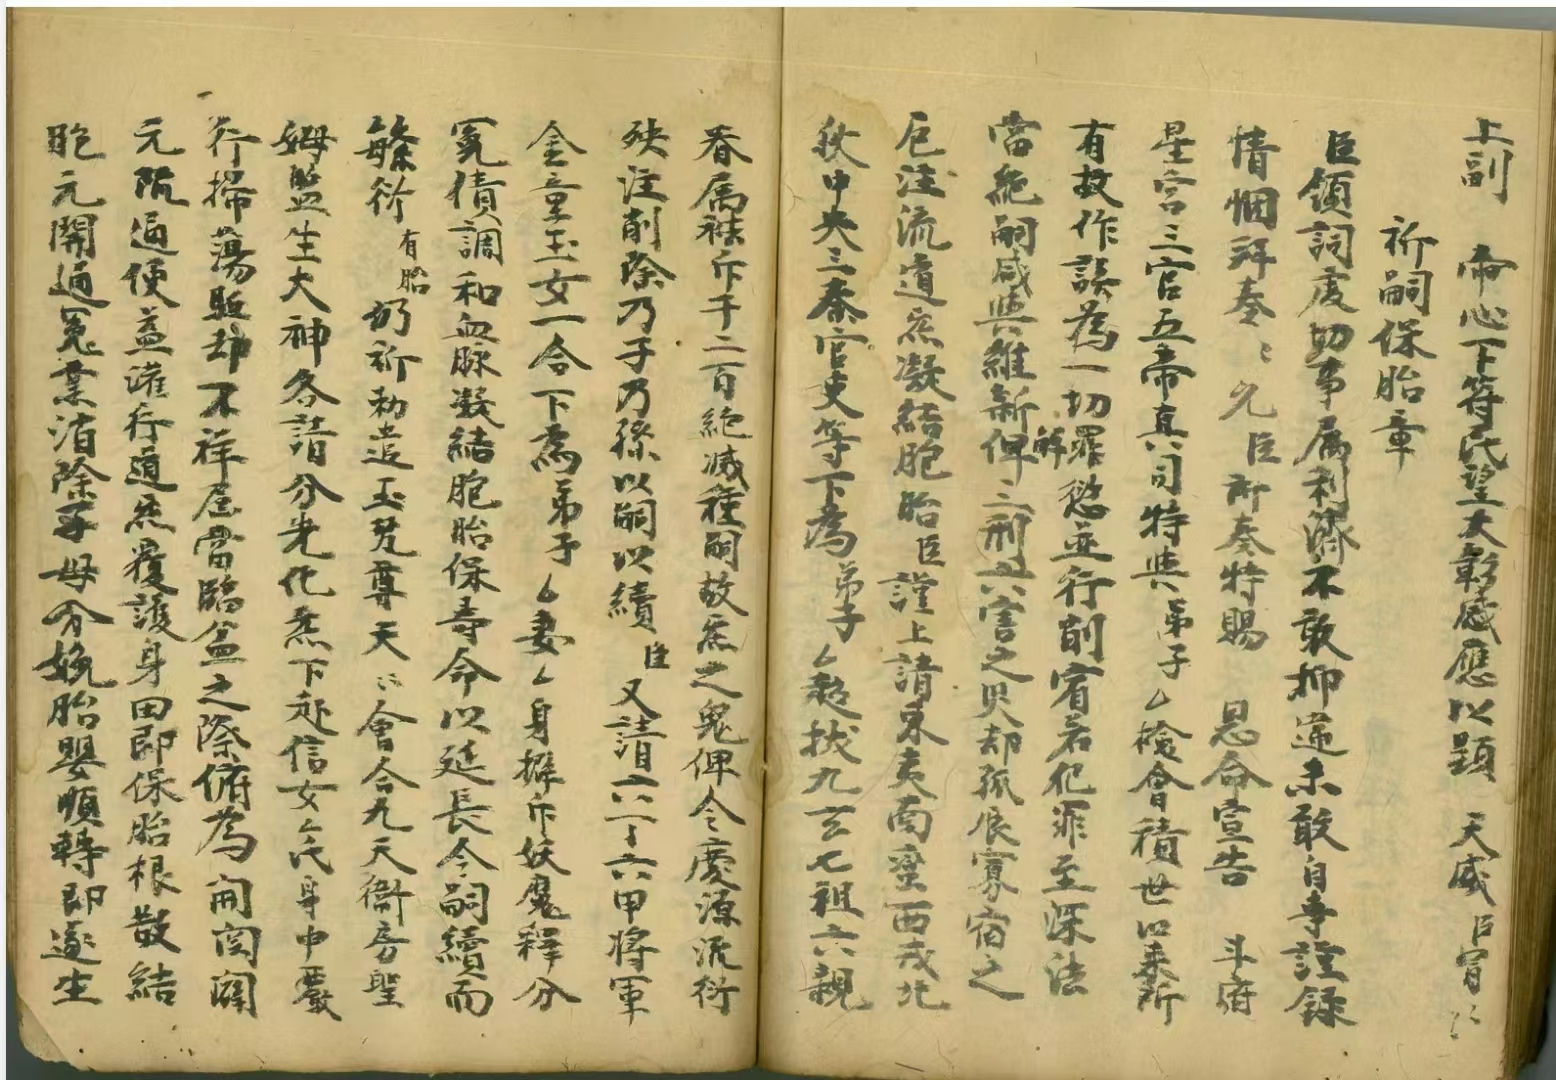 上副 帝心下符民望大彰感應以顯 天威臣冐〻
祈嗣保胎章
臣領詞虔切事属利濟不敢抑遏未敢自專謹録
情悃拜奏〻允臣所奏特賜 恩命宣告 斗府
星宮三官五帝真司特與弟子厶檢會積世以來所
有故作誤為一切罪愆並行削宥若犯罪至深法
解
當絶嗣咸與維新俾二刑六害之 却孤辰寡宿之
厄注流道炁凝結胞胎臣謹上請東夷南蠻西戎北
狄中央三秦官吏等下為弟子厶超拔九玄七祖六親
眷属袪斥千二百絶滅種嗣故炁之鬼俾令慶源流衍
殃注削除乃子乃孫以嗣以續臣又請六丁六甲將軍
金童玉女一合下為弟子厶妻厶身摒斥妖魔釋分
冤債調和血脉凝結胞胎保壽命以延長令嗣續而
螽衍有胎仍祈勑遣玉 尊天〻會合九天衛房聖
姆監生大神各請分光化炁下赴信女厶氏身中嚴
行掃蕩驅却不祥屆當臨盆之際俯為開関闢
元 逼便盖灌行道炁覆護身田即保胎根散結
胞元開通冤業消除子母分娩胎嬰順轉即遂生